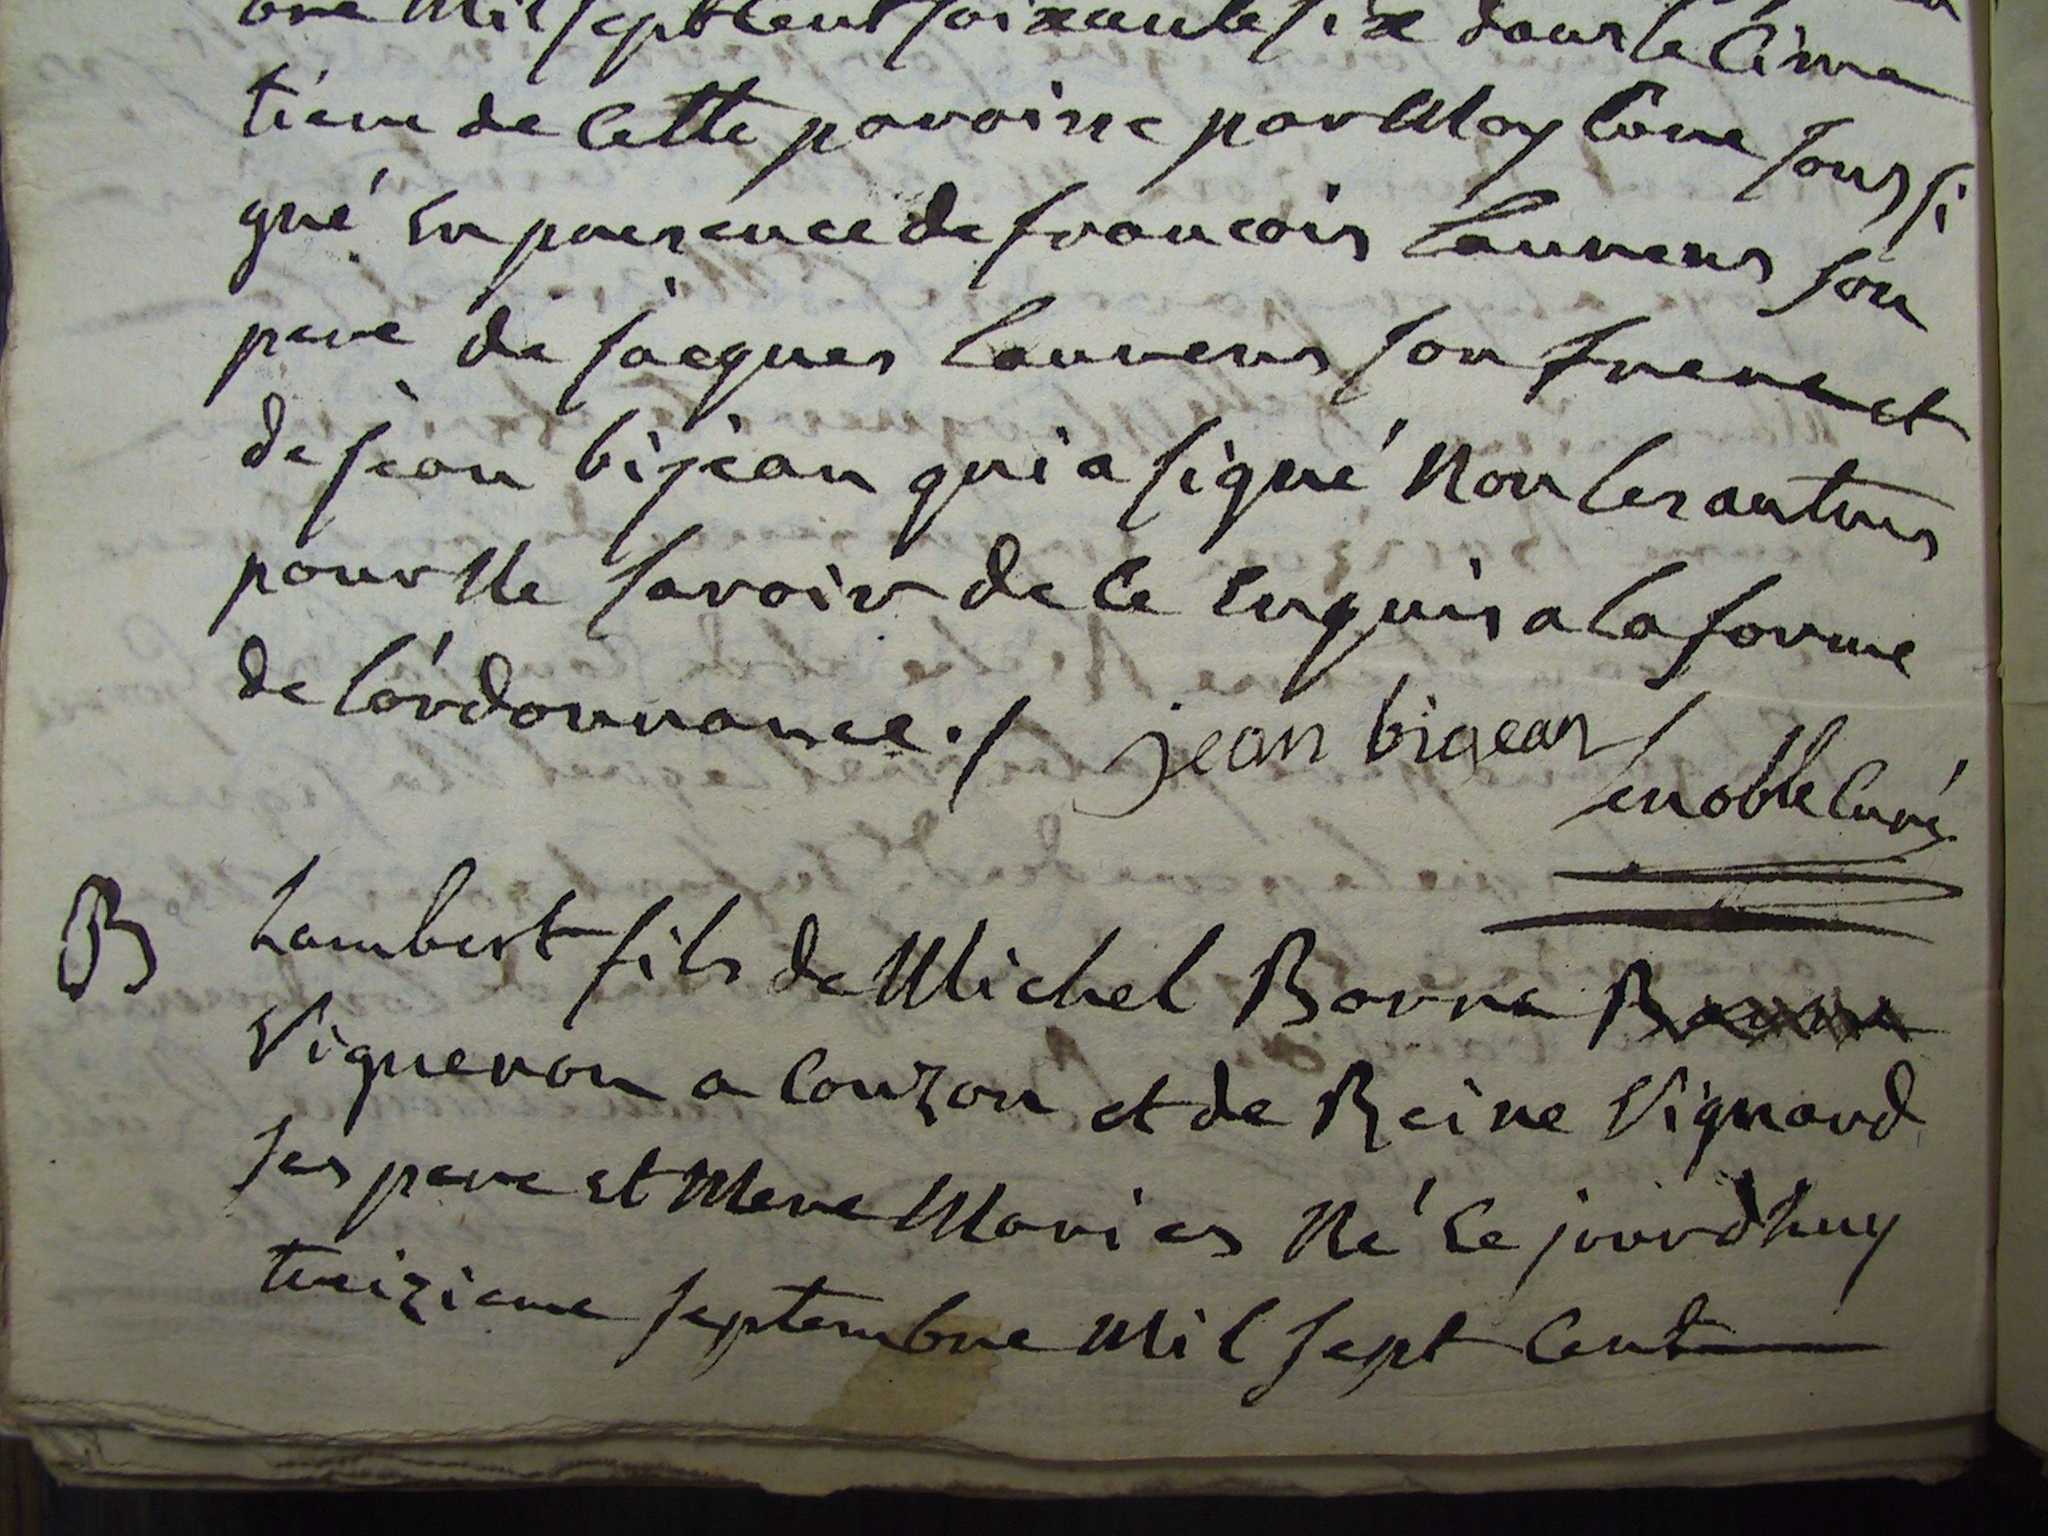 bre Mil septcent soixante six dans le Cime
tiere de Cette paroisse par Moy Cure sous si
gné En presence de francois Laurens son
pere de jacques Laurens son frere et
de jean bijean qui a signé Non les autres
pour Ne savoir de ce Enquis a la forme
de l'ordonnance ./ jean bigean
enoble Curé
B Lambert fils de Michel Borne
Vigneron a Couzon et de Reine Vignard
ses pere et Mere Maries Né Ce jourdhuy
treizieme septembre Mil sept Cent